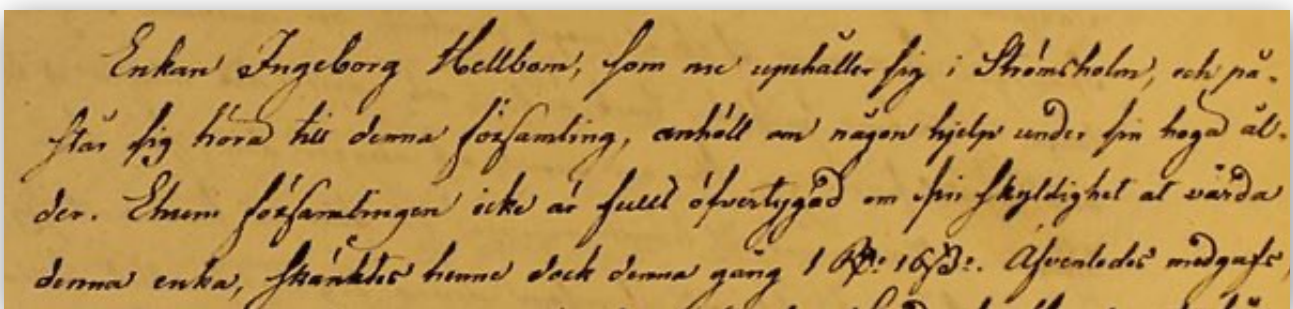 Enkan Ingeborg Hellbom, som nu uppehåller sig i Strömsholm, och på-
står sig höra till denna församling, anhöll om någon hjelp under sin höga ål-
der. Ehuru församlingen icke är fullt öfvertygad om sin skyldighet at vårda
denna enka, skänktes henne dock denna gång 1 Rd: 16 s:. Äfvenledes medgafs,